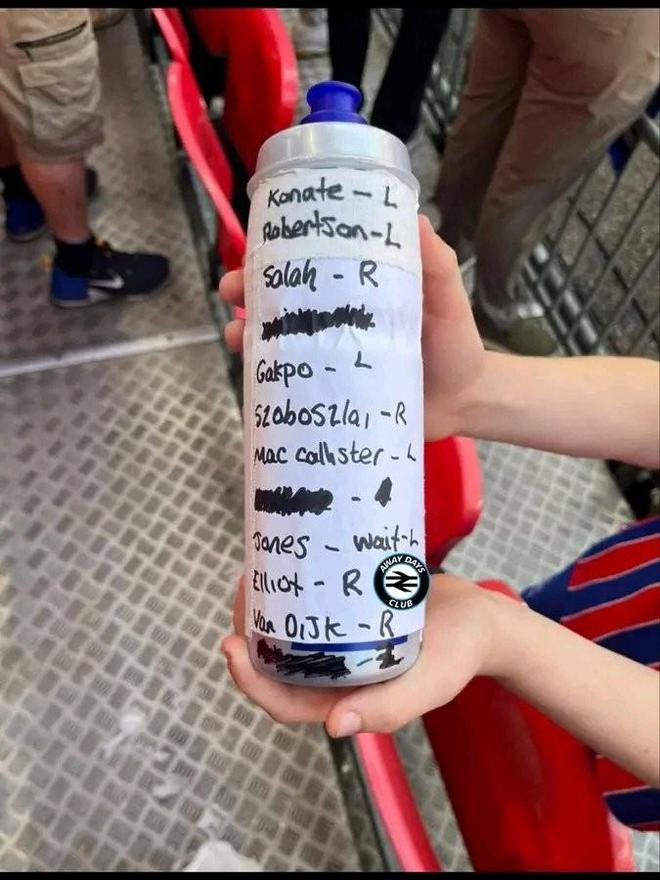 Konate - L
Robertson - L
Salah - R
Gakpo - L
Szoboszlai - R
Mac callister - L
Jones - wait - L
Elliot - R
Van Dijk - R
AWAY DAYS
CLUB